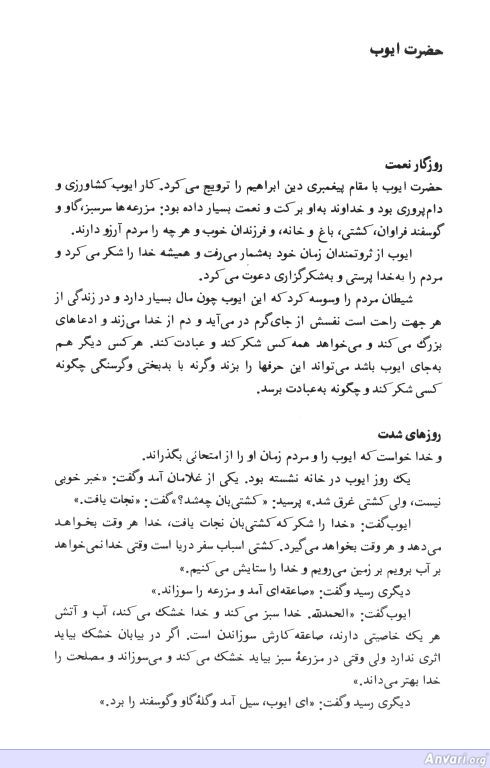 حضرت ایوب
روزگار نعمت
حضرت ایوب با مقام پیغمبری دین ابراهیم را ترویج می‌کرد. کار ایوب کشاورزی و
دام‌پروری بود و خداوند به‌او برکت و نعمت بسیار داده بود: مزرعه‌ها سرسبز، گاو و
گوسفند فراوان، کشتی، باغ و خانه، و فرزندان خوب و هر چه را مردم آرزو دارند.
ایوب از ثروتمندان زمان خود به‌شمار می‌رفت و همیشه خدا را شکر می‌کرد و
مردم را به‌خدا پرستی و به‌شکرگزاری دعوت می‌کرد.
شیطان مردم را وسوسه کرد که این ایوب چون مال بسیار دارد و در زندگی از
هر جهت راحت است نفسش از جای‌گرم در می‌آید و دم از خدا می‌زند و ادعاهای
بزرگ می‌کند و می‌خواهد همه کس شکر کند و عبادت کند. هر کس دیگر هم
به‌جای ایوب باشد می‌تواند این حرفها را بزند وگرنه با بدبختی وگرسنگی چگونه
کسی شکر کند و چگونه به‌عبادت برسد.
روزهای شدت
و خدا خواست که ایوب را و مردم زمان او را از امتحانی بگذراند.
یک روز ایوب در خانه نشسته بود. یکی از غلامان آمد وگفت: «خبر خوبی
نیست، ولی کشتی غرق شد.» پرسید: «کشتی‌بان چه‌شد؟» گفت: «نجات یافت.»
ایوب‌گفت: «خدا را شکر که کشتی‌بان نجات یافت، خدا هر وقت بخواهد
می‌دهد و هر وقت بخواهد می‌گیرد. کشتی اسباب سفر دریا است وقتی خدا نمی‌خواهد
بر آب برویم بر زمین می‌رویم و خدا را ستایش می‌کنیم.»
دیگری رسید وگفت: «صاعقه‌ای آمد و مزرعه را سوزاند.»
ایوب‌گفت: «الحمدلله. خدا سبز می‌کند و خدا خشک می‌کند، آب و آتش
هر یک خاصیتی دارند، صاعقه کارش سوزاندن است. اگر در بیابان خشک بیاید
اثری ندارد ولی وقتی در مزرعهٔ سبز بیاید خشک می‌کند و می‌سوزاند و مصلحت را
خدا بهتر می‌داند.»
دیگری رسید وگفت: «ای ایوب، سیل آمد وگلهٔ گاو وگوسفند را برد.»
Anvari.org